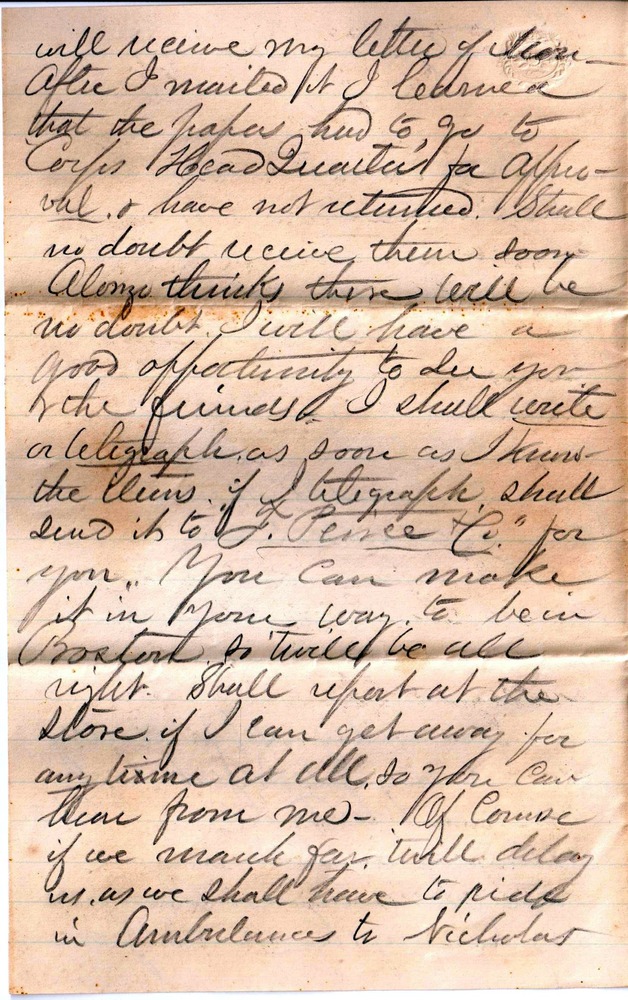 will receive my letter of Mon-
After I mailed it I learned
that the papers had to go to
Corps Head Quarters for appro-
val. & have not returned. Shall
no doubt receive them soon
Alonzo thinks there will be
no doubt. I will have a
good opportunity to see you
& the friends. I shall write
or telegraph as soon as I know
the items. if I telegraph, shall
send it to "F. Peirce & Co." for
you. You can make
it in your way to be in
Boston. so 'twill be all
right. Shall report at the
store if I can get away for
any time at all, so you can
hear from me- Of Course
if we march far, 'twill delay
us. as we shall have to ride
in Ambulances to Nicholas